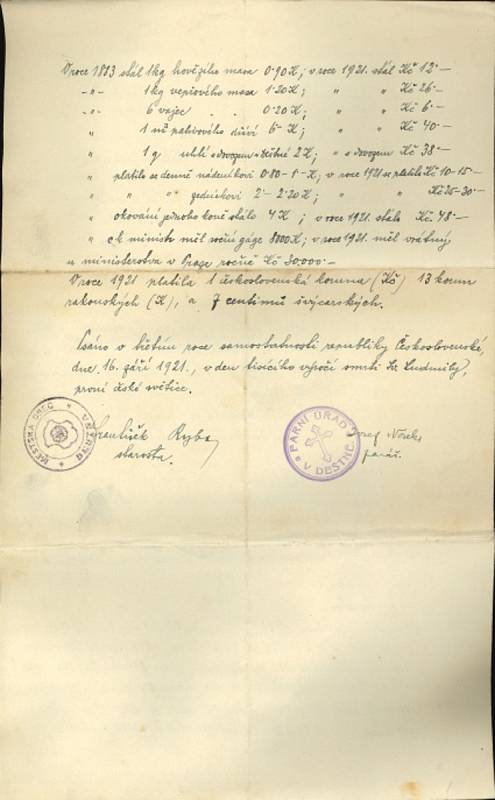 V roce 1883 stál 1 kg hovězího masa 0·90 K; v roce 1921. stál Kč 12·—
-"- 1 kg vepřového masa 1·20 K; " " Kč 26·—
-"- 6 vajec . . 0·20 K; " " Kč 6·—
" 1 m³ palivového dříví 6·— K; " " Kč 40·—
" 1 q uhlí s dovozem 2 K; " s dovozem Kč 38·—
" platilo se denně nádeníkovi 0·80 - 1·- K; v roce 1921 se platilo Kč 10-15·—
" " " zedníkovi 2·- 2·20 K; " " Kč 25-30·—
" okování jednoho koně stálo 4 K; v roce 1921. stálo Kč 48·—
" c.k. ministr měl roční gáže 8000 K; v roce 1921. měl vrátný
u ministerstva v Praze ročně Kč 30,000·—
V roce 1921 platila 1 československá koruna (Kč) 13 korun
rakouských (K), a 7 centimů švýcarských.
Psáno v třetím roce samostatnosti republiky Československé,
dne 16. září 1921., v den tisícího výročí smrti Sv. Ludmily,
první české světice.
František Ryba
starosta.
Josef
farář.
MĚSTSKÁ OBEC
FARNÍ ÚŘAD
V DEŠTNÉ